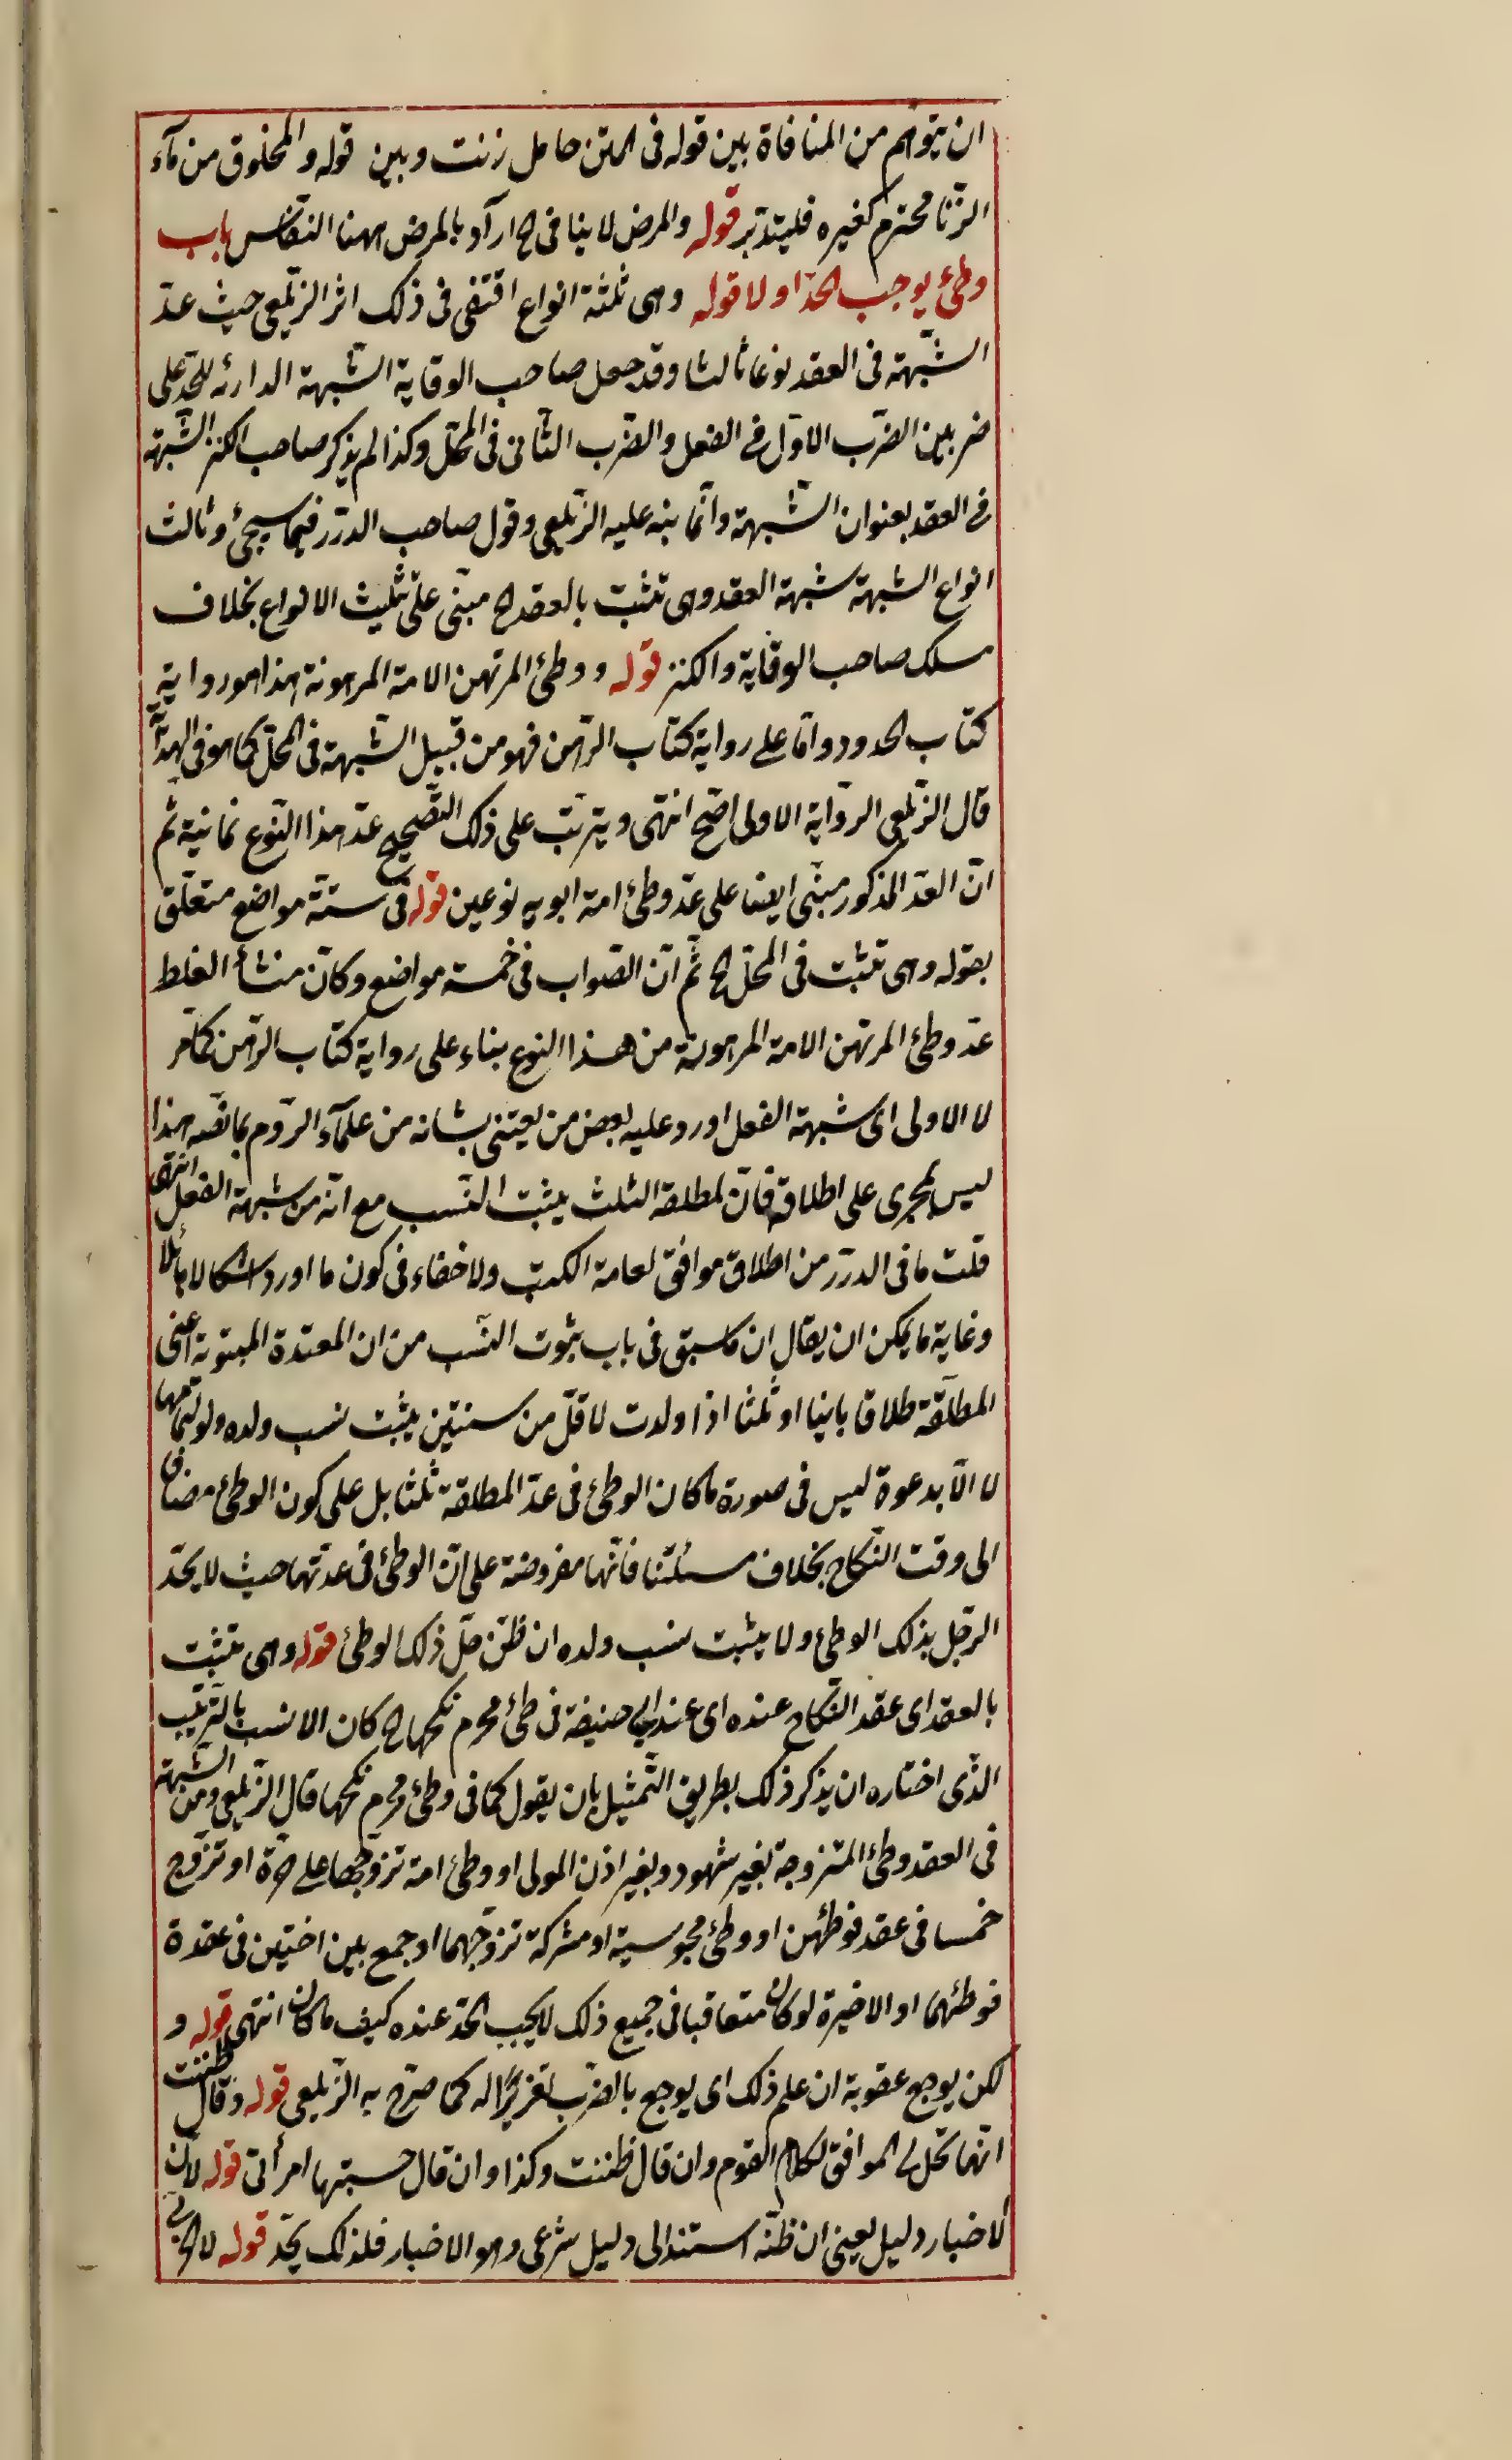 ان يتوهم من المنافاة بين قوله فى المتن حامل زنت وبين قوله والمخلوق من مآء
الزنا محترم كغيره فليتدبر قوله والمرض لا ينافى الخ اراد بالمرض ههنا النفاس باب
وطئ يوجب الحد او لا قوله وهى ثلثة انواع اقتفى فى ذلك اثر الزيلعى حيث عدّ
الشبهة فى العقد نوعا ثالثا وقد جعل صاحب الوقاية الشبهة الدارئه للحد على
ضربين الضرب الاول فى الفعل والضرب الثانى فى المحل وكذا لم يذكر صاحب الكنز الشبهة
فى العقد بعنوان الشبهة وانما نبه عليه الزيلعى وقول صاحب الدرر فيما سيجئ وثالث
انواع الشبهة شبهة العقد وهى تثبت بالعقد الخ مبنى على تثليث الانواع بخلاف
مسلك صاحب الوقاية والكنز قوله ووطئ المرتهن الامة المرهونة هذا هو رواية
كتاب الحدود واما على رواية كتاب الرهن فهو من قبيل الشبهة فى المحل كما هو فى الهداية
قال الزيلعى الرواية الاولى اصح انتهى ويترتب على ذلك التصحيح عدّ هذا النوع ثمانية ثم
ان العد المذكور مبنى ايضا على عدّ وطئ امة ابويه نوعين قوله فى ستة مواضع متعلق
بقوله وهى تثبت فى المحل الخ ثم ان الصواب فى خمسة مواضع وكان منشأ الغلط
عدّ وطئ المرتهن الامة المرهونة من هذا النوع بناء على رواية كتاب الرهن كما مرّ
لا الاولى اى شبهة الفعل اورد عليه بعض من يعتنى بشانه من علمآء الروم بما نصه هذا
ليس بمجرى على اطلاقه فان المطلقة الثلث يثبت النسب مع انه من شبهة الفعل انتهى
قلت ما فى الدرر من اطلاق موافق لعامة الكتب ولا خفاء فى كون ما اورد اشكالا هائلا
وغاية ما يمكن ان يقال ان ما سبق فى باب ثبوت النسب من ان المعتدة المبتوتة اعنى
المطلقة طلاقا باينا او ثلثا اذا ولدت لاقل من سنتين يثبت نسب ولده ولو لتمامها
لا الا بدعوة ليس فى صورة ما كان الوطئ فى عدّ المطلقة ثلثا بل على كون الوطئ مضاف
الى وقت النكاح بخلاف مسئلتنا فانها مفروضة على ان الوطئ فى عدتها حيث لا يحدّ
الرجل بذلك الوطئ ولا يثبت نسب ولده ان ظن حل ذلك الوطئ قوله وهى تثبت
بالعقد اى عقد النكاح عنده اى عند ابى حنيفة فى وطئ محرم نكحها الخ كان الانسب بالترتيب
الذى اختاره ان يذكر ذلك بطريق التمثيل بان يقول كما فى وطئ محرم نكحها قال الزيلعى ومن الشبهة
فى العقد وطئ المتزوجة بغير شهود وبغير اذن المولى او وطئ امة تزوجها على حرة او تزوج
خمسا فى عقد فوطئهن او وطئ مجوسية او مشركة تزوجهما او جمع بين اختين فى عقدة
فوطئهما او الاخيرة لو كان متعاقبا فى جميع ذلك لا يجب الحد عنده كيف ما كان انتهى قوله و
لكن يوجع عقوبة ان علم ذلك اى يوجع بالضرب تعزيرًا له كما صرح به الزيلعى قوله وقال ظننت
انها تحل لى الموافق لكلام القوم وان قال ظننت وكذا وان قال حسبتها امرأتى قوله لان
الاخبار دليل يعنى ان ظنه استند الى دليل شرعى وهو الاخبار فلذلك يحد قوله لا